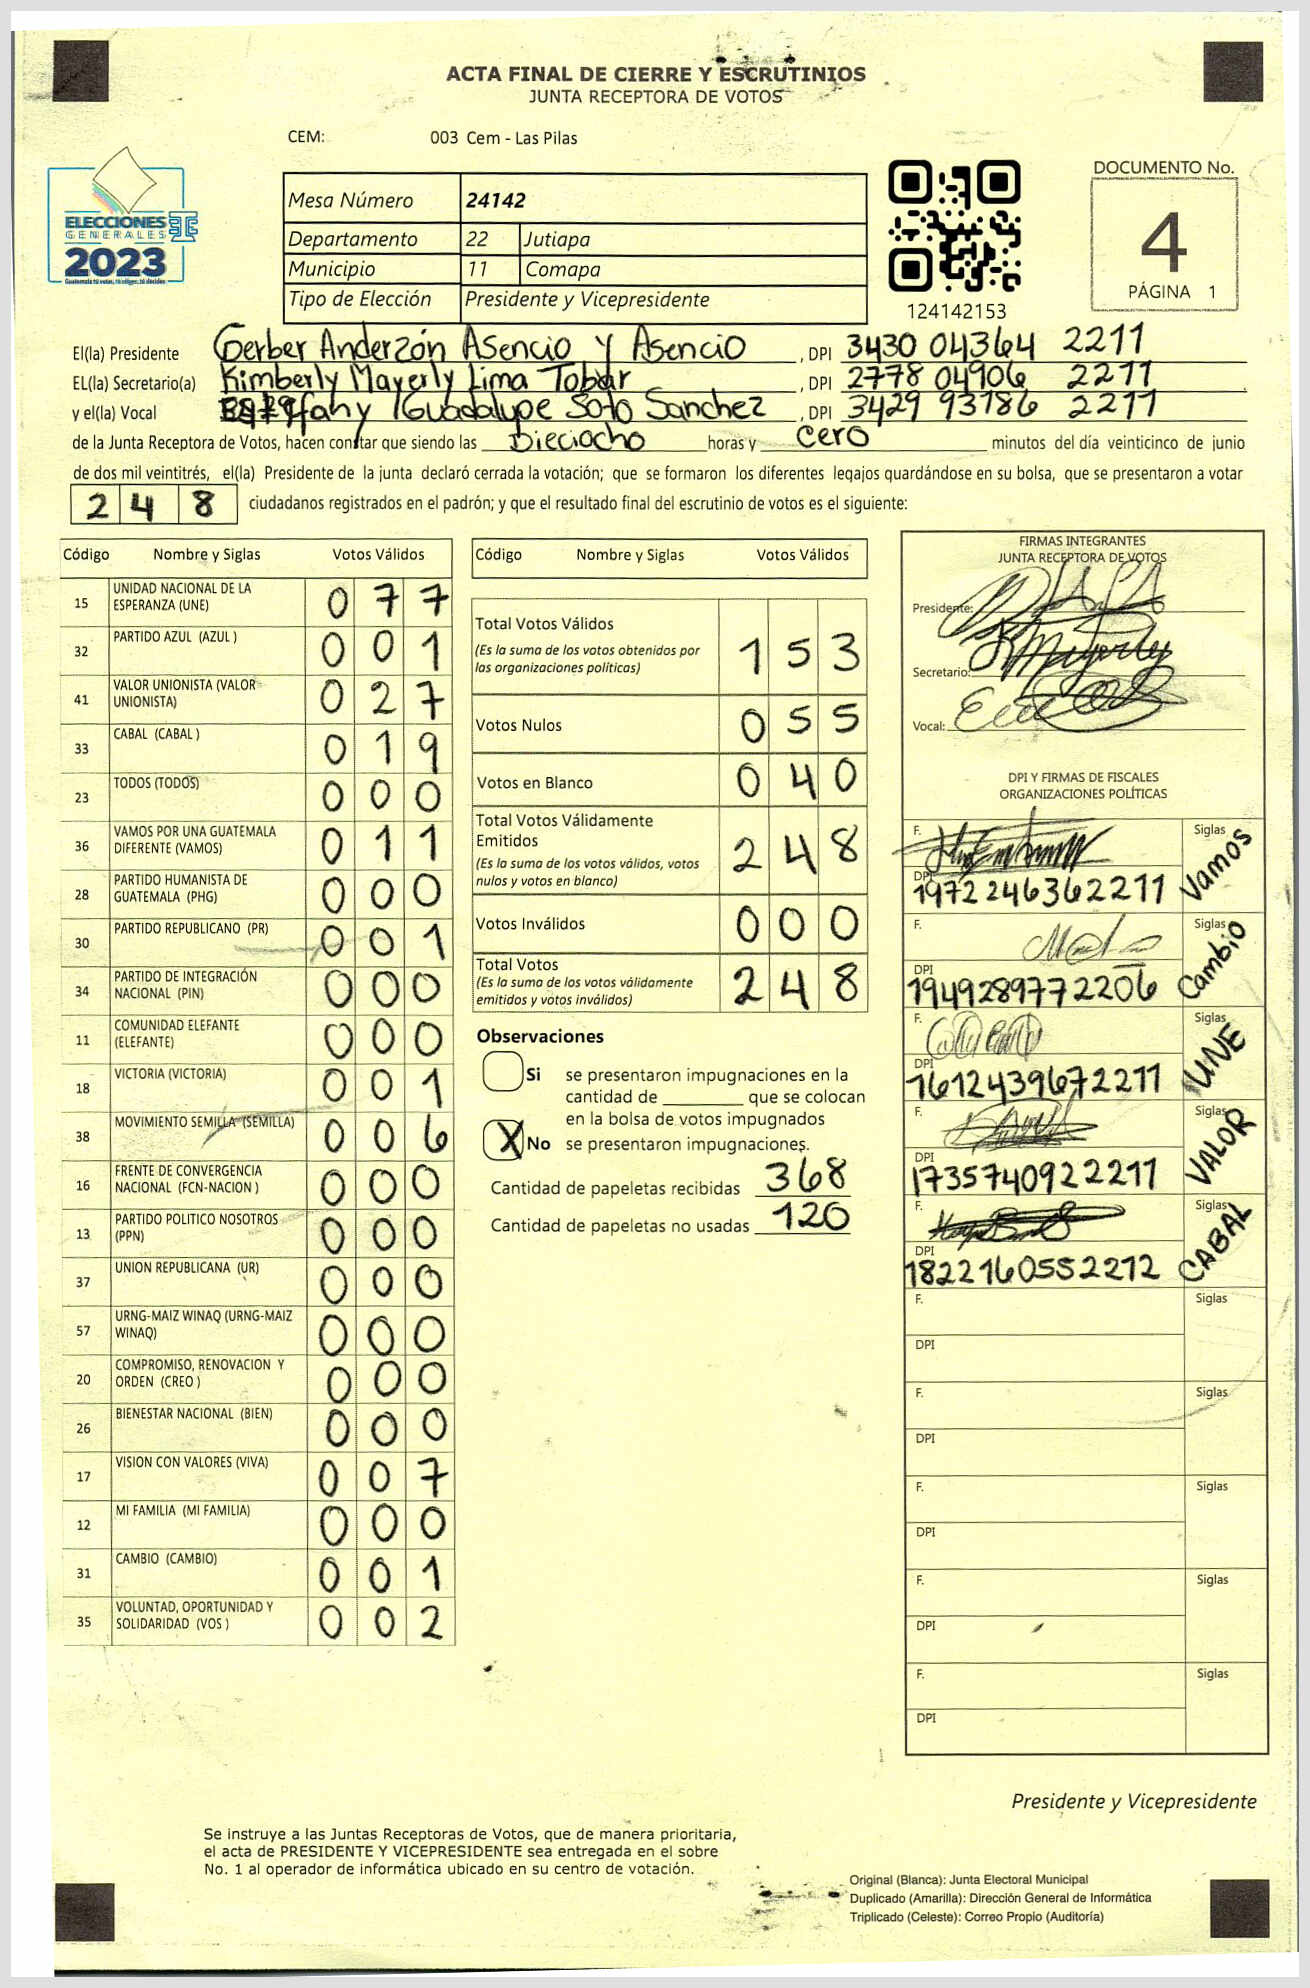 ACTA FINAL DE CIERRE Y ESCRUTINIOS
JUNTA RECEPTORA DE VOTOS
CEM: 003 Cem - Las Pilas
DOCUMENTO No.
4
PÁGINA 1
ELECCIONES
GENERALES
2023
Guatemala tú votas, tú eliges, tú decides
Mesa Número 24142
Departamento 22 Jutiapa
Municipio 11 Comapa
Tipo de Elección Presidente y Vicepresidente
124142153
El(la) Presidente Gerber Anderzón Asencio y Asencio, DPI 3430 04364 2211
EL(la) Secretario(a) Kimberly Mayerly Lima Tobar, DPI 2778 04906 2211
y el(la) Vocal Guadalupe Soto Sanchez, DPI 3429 93786 2211
de la Junta Receptora de Votos, hacen constar que siendo las Dieciocho horas y cero minutos del día veinticinco de junio
de dos mil veintitrés, el(la) Presidente de la junta declaró cerrada la votación; que se formaron los diferentes legajos quardándose en su bolsa, que se presentaron a votar
248 ciudadanos registrados en el padrón; y que el resultado final del escrutinio de votos es el siguiente:
Código Nombre y Siglas Votos Válidos
15 UNIDAD NACIONAL DE LA ESPERANZA (UNE) 077
32 PARTIDO AZUL (AZUL ) 001
41 VALOR UNIONISTA (VALOR UNIONISTA) 027
33 CABAL (CABAL ) 019
23 TODOS (TODOS) 000
36 VAMOS POR UNA GUATEMALA DIFERENTE (VAMOS) 011
28 PARTIDO HUMANISTA DE GUATEMALA (PHG) 000
30 PARTIDO REPUBLICANO (PR) 001
34 PARTIDO DE INTEGRACIÓN NACIONAL (PIN) 000
11 COMUNIDAD ELEFANTE (ELEFANTE) 000
18 VICTORIA (VICTORIA) 001
38 MOVIMIENTO SEMILLA (SEMILLA) 006
16 FRENTE DE CONVERGENCIA NACIONAL (FCN-NACION ) 000
13 PARTIDO POLITICO NOSOTROS (PPN) 000
37 UNION REPUBLICANA (UR) 000
57 URNG-MAIZ WINAQ (URNG-MAIZ WINAQ) 000
20 COMPROMISO, RENOVACION Y ORDEN (CREO ) 000
26 BIENESTAR NACIONAL (BIEN) 000
17 VISION CON VALORES (VIVA) 007
12 MI FAMILIA (MI FAMILIA) 000
31 CAMBIO (CAMBIO) 001
35 VOLUNTAD, OPORTUNIDAD Y SOLIDARIDAD (VOS ) 002
Código Nombre y Siglas Votos Válidos
Total Votos Válidos 153
(Es la suma de los votos obtenidos por
las organizaciones políticas)
Votos Nulos 055
Votos en Blanco 040
Total Votos Válidamente
Emitidos 248
(Es la suma de los votos válidos, votos
nulos y votos en blanco)
Votos Inválidos 000
Total Votos 248
(Es la suma de los votos válidamente
emitidos y votos inválidos)
Observaciones
Si se presentaron impugnaciones en la
cantidad de ________ que se colocan
en la bolsa de votos impugnados
X No se presentaron impugnaciones.
Cantidad de papeletas recibidas 368
Cantidad de papeletas no usadas 120
FIRMAS INTEGRANTES
JUNTA RECEPTORA DE VOTOS
Presidente:
Secretario:
Vocal:
DPI Y FIRMAS DE FISCALES
ORGANIZACIONES POLÍTICAS
F. Siglas Vamos
DPI 1972246362211
F. Siglas Cambio
DPI 1949289772206
F. Siglas UNE
DPI 1612439672211
F. Siglas VALOR
DPI 1735740922211
F. Siglas CABAL
DPI 1822160552212
F. Siglas
DPI
F. Siglas
DPI
F. Siglas
DPI
F. Siglas
DPI
F. Siglas
DPI
Presidente y Vicepresidente
Se instruye a las Juntas Receptoras de Votos, que de manera prioritaria,
el acta de PRESIDENTE Y VICEPRESIDENTE sea entregada en el sobre
No. 1 al operador de informática ubicado en su centro de votación.
Original (Blanca): Junta Electoral Municipal
Duplicado (Amarilla): Dirección General de Informática
Triplicado (Celeste): Correo Propio (Auditoría)